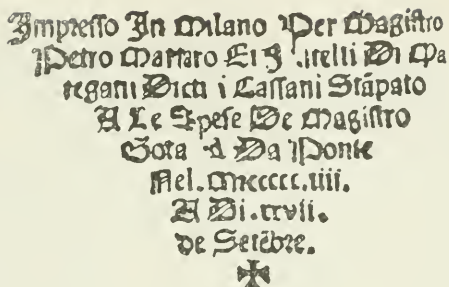 Impresso In Milano Per Magistro
Petro Martaro Et Fratelli Di Ma
tegani Dicti i Cassani Stāpato
A Le Spese De Magistro
Gota d Da Ponte
Nel. Mccccc.iiii.
A Di.xxvii.
de Setēbre.